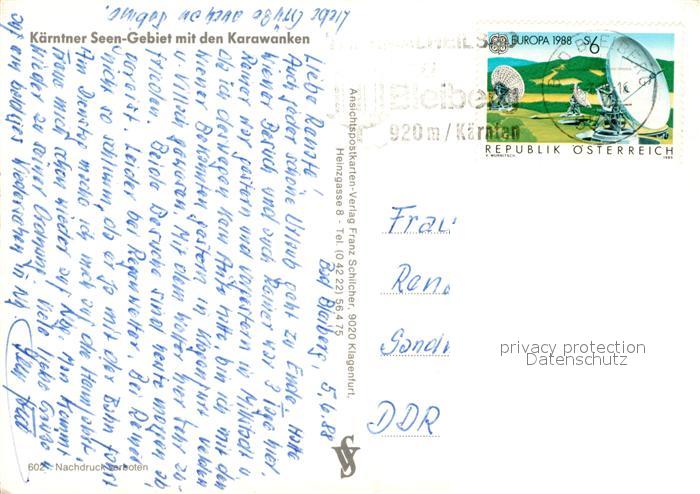 Kärntner Seen-Gebiet mit den Karawanken
Bad Bleiberg, 5.6.88
Liebe Renate!
Auch jeder schöne Urlaub geht zu Ende. Hatte
Wiener Besuch und auch Rainer war 3 Tage hier.
Rainer von gestern und vorgestern in Millstatt u.
Da ich deswegen kein Auto hatte, bin ich mit den
Wiener Bekannten gestern in Klagenfurt Velden
u. Villach gefahren. Mit dem Wetter hier sehr zu-
frieden. Beide Besuche sind heute morgen ab-
gereist. Leider bei Regenwetter. Bei Rainer
nicht so schlimm, da er ja mit der Bahn fährt.
Am Dienstag mache ich mich auf die Heimfahrt.
Freue mich schon wieder auf Nbg. Man kommt
wieder zu seiner Ordnung. Viele liebe Grüße u.
auf ein baldiges Wiedersehen in N.
Liebe Grüße auch an Sabine.
602 - Nachdruck verboten
Ansichtspostkarten-Verlag Franz Schilcher, 9020 Klagenfurt,
Heinzgasse 8 - Tel. (0 42 22) 56 4 75
EUROPA 1988 S6
REPUBLIK ÖSTERREICH
1988
Bleiberg
920 m / Kärnten
Frau
Ren
Sond
DDR
privacy protection
Datenschutz